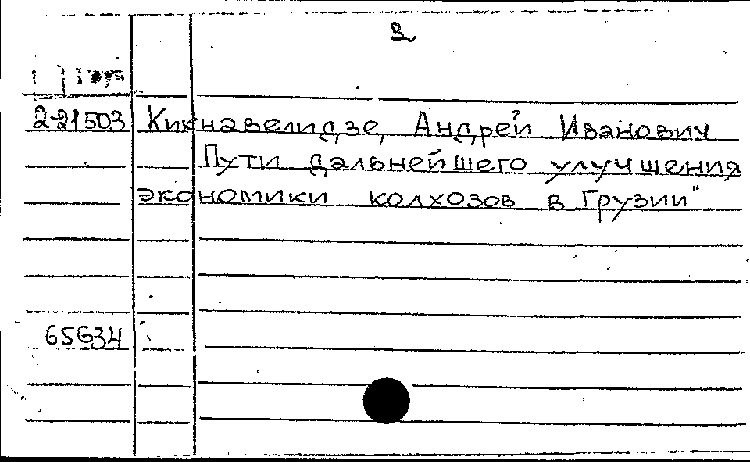 2
2-21503 Кикнавелидзе, Андрей Иванович
Пути дальнейшего улучшения
экономики колхозов в Грузии"
65634